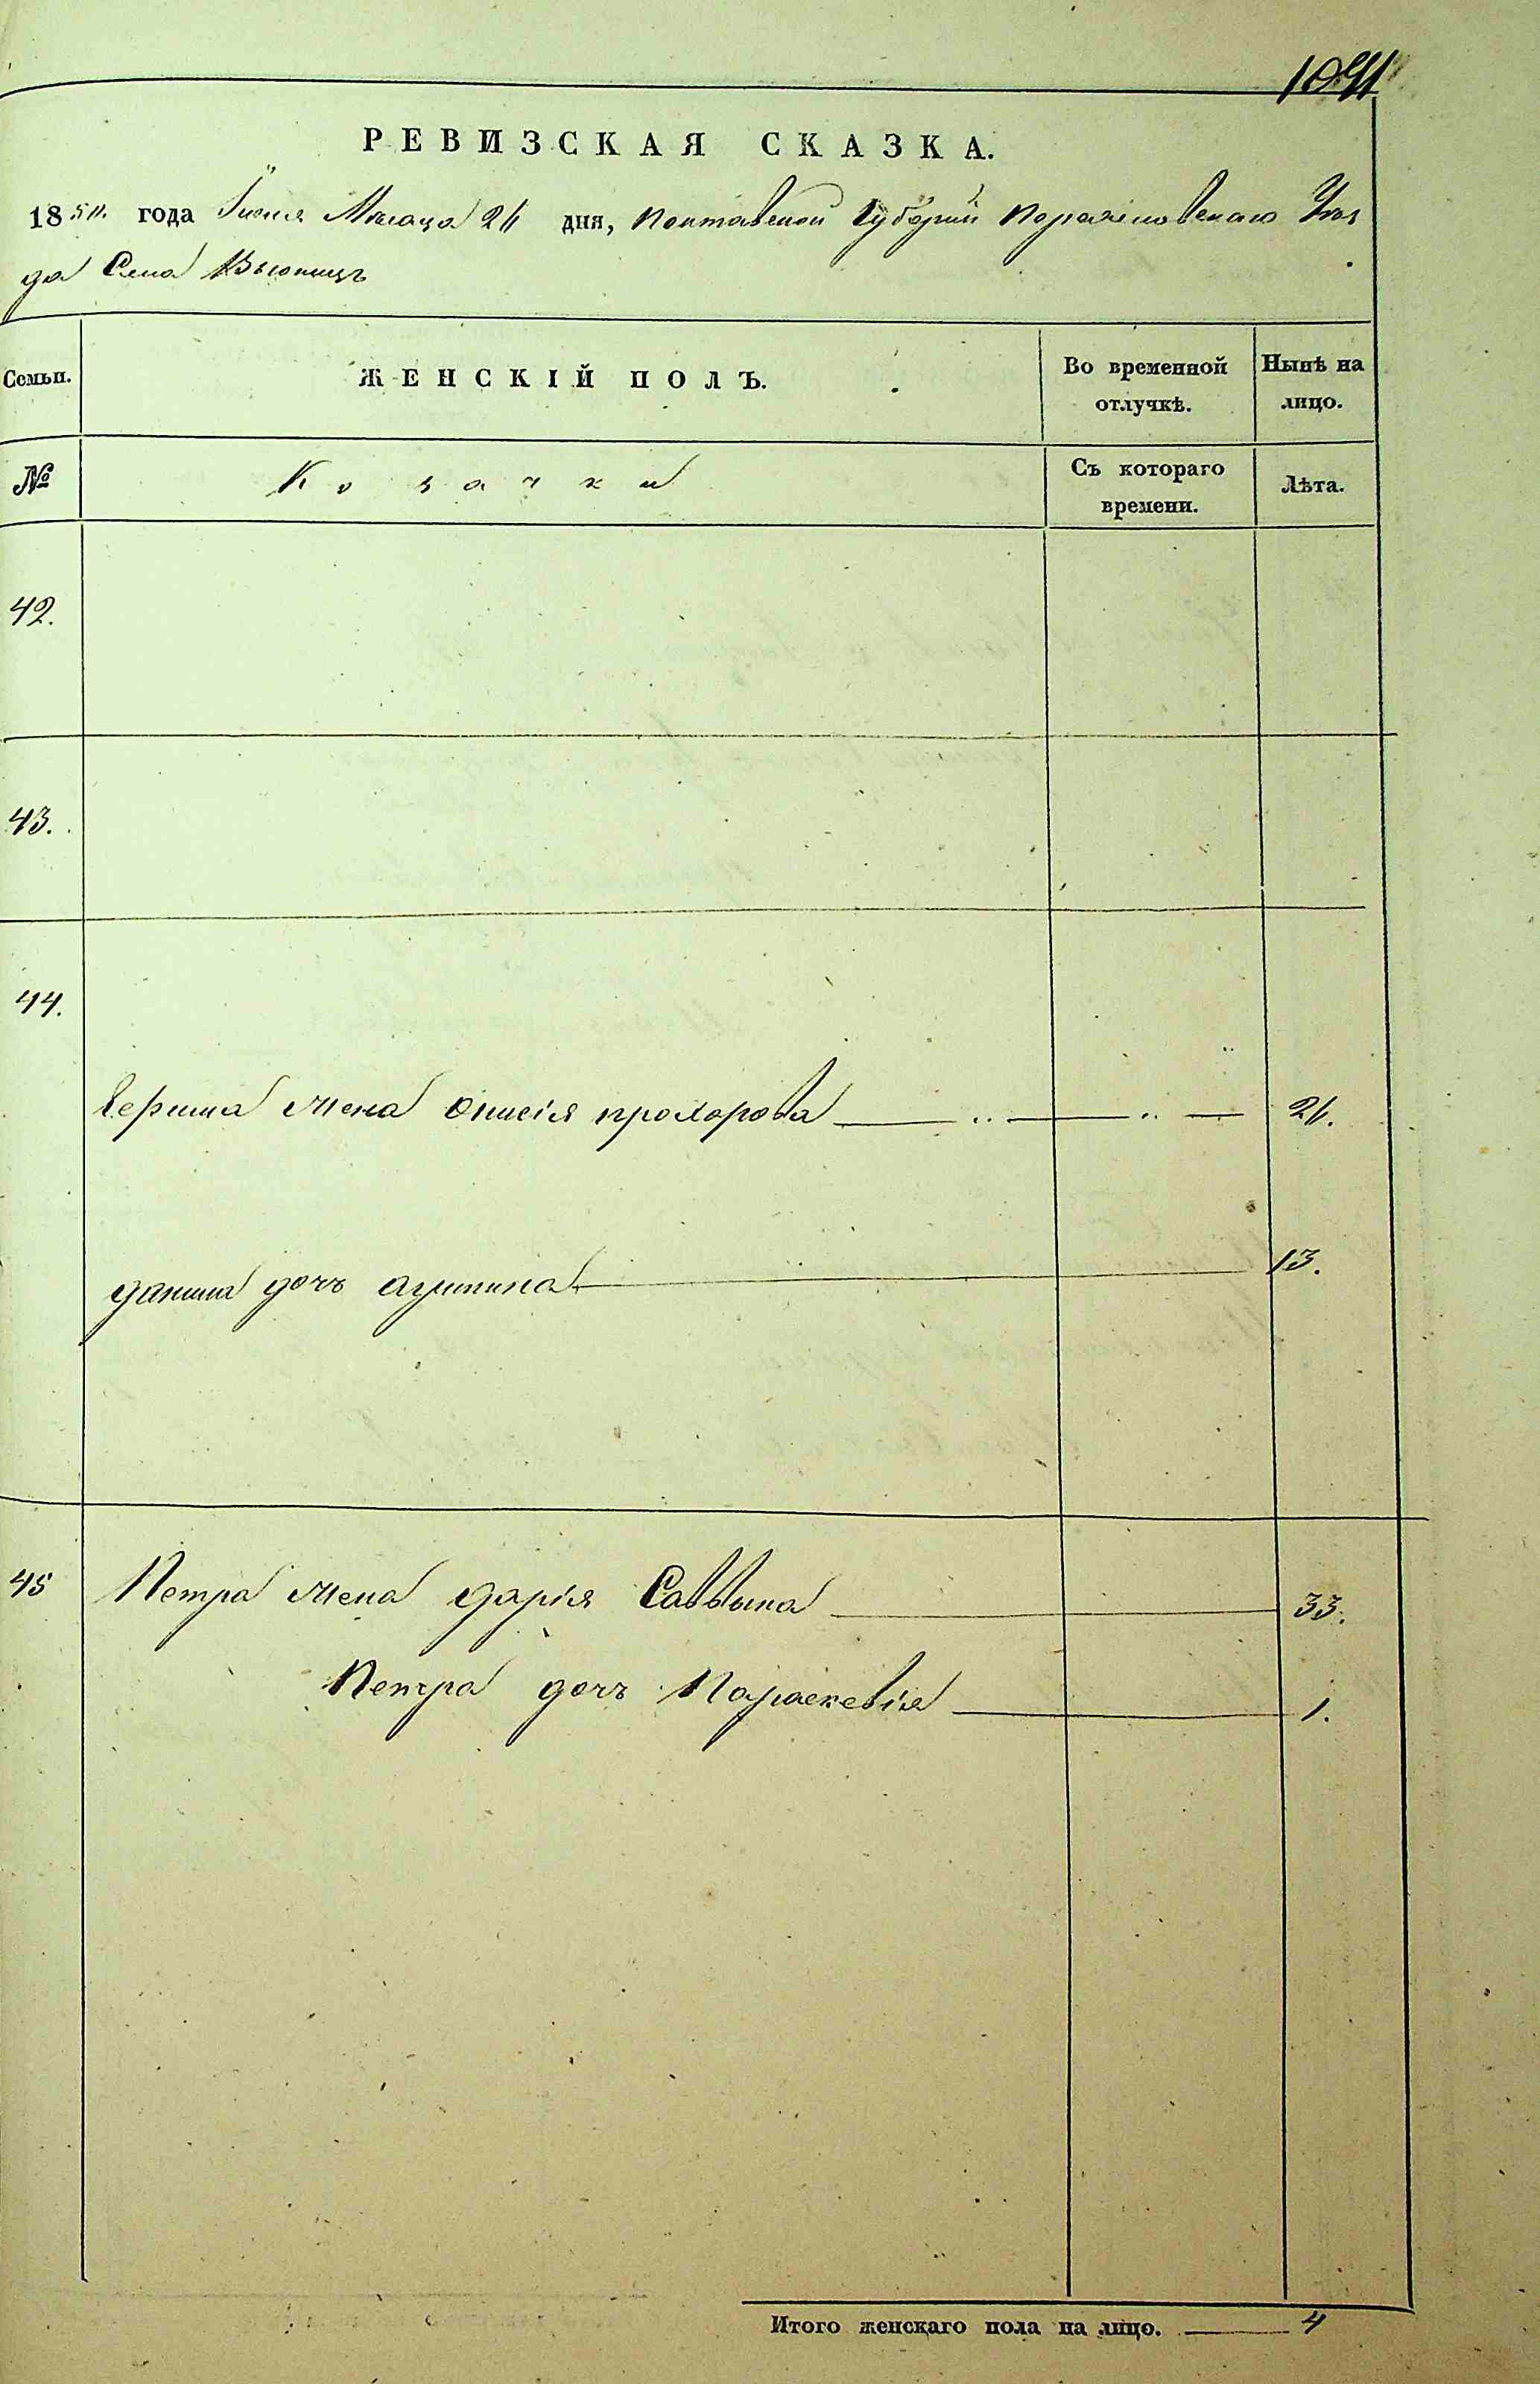 1041
РЕВИЗСКАЯ СКАЗКА.
1850. года Июня Месяца 26 дня, Полтавской Губернии Переяславскаго Уез
да Села Вьюнищь
Семьи. ЖЕНСКІЙ ПОЛЪ. Во временной отлучкѣ. Нынѣ на лицо.
№ Козачки Съ котораго времени. Лѣта.
42.
43.
44.
жена Онисія прохорова 26.
данила дочь агрипина 13.
45 Петра жена дарія Саввына 33.
Петра дочь Параскевія 1.
Итого женскаго пола на лицо. 4